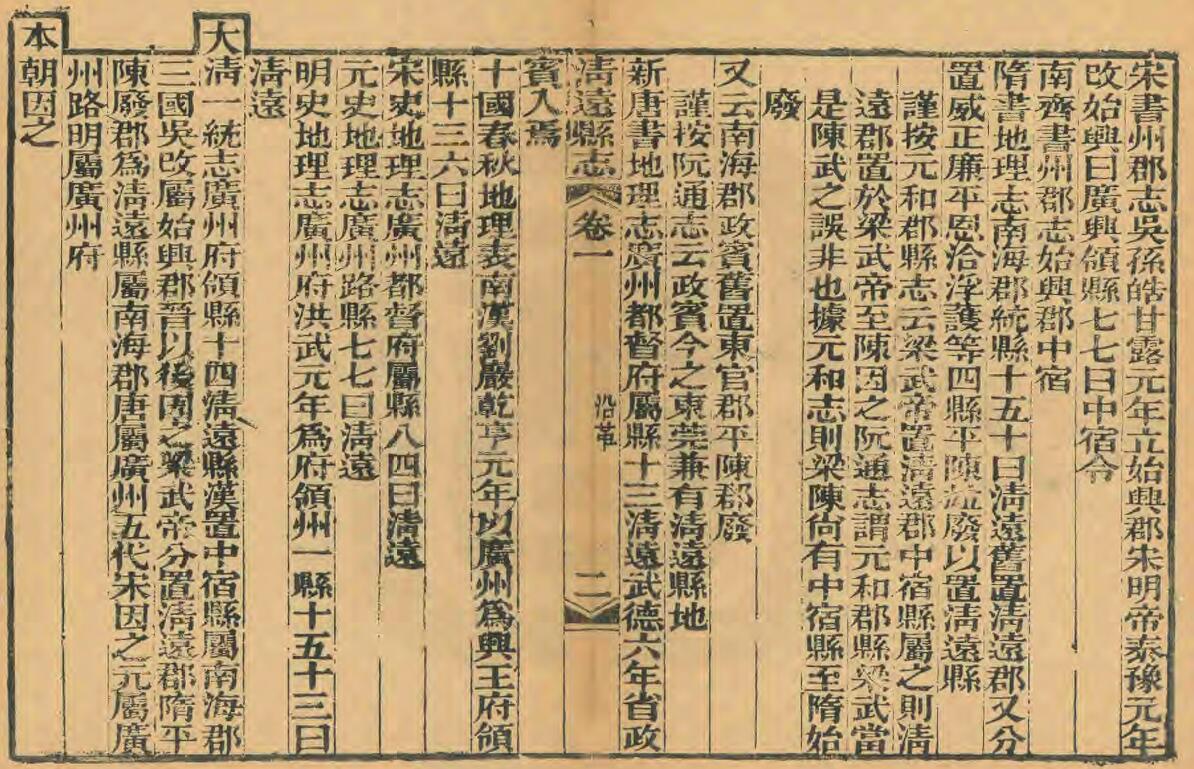 宋書州郡志吳孫皓甘露元年立始興郡宋明帝泰豫元年
改始興曰廣興領縣七七曰中宿令
南齊書州郡志始興郡中宿
隋書地理志南海郡統縣十五十曰淸遠舊置淸遠郡又分
置威正廉平恩洽浮護等四縣平陳並廢以置淸遠縣
謹按元和郡縣志云梁武帝置淸遠郡中宿縣屬之則淸
遠郡置於梁武帝至陳因之阮通志謂元和郡縣梁武當
是陳武之誤非也據元和志則梁陳尙有中宿縣至隋始
廢
又云南海郡政賓舊置東官郡平陳郡廢
謹按阮通志云政賓今之東莞兼有淸遠縣地
新唐書地理志廣州都督府屬縣十三淸遠武德六年省政
淸遠縣志 卷一 沿革 二
賓入焉
十國春秋地理表南漢劉巖乾亨元年以廣州爲興王府領
縣十三六曰淸遠
宋史地理志廣州都督府屬縣八四曰淸遠
元史地理志廣州路縣七七曰淸遠
明史地理志廣州府洪武元年爲府領州一縣十五十三曰
淸遠
大淸一統志廣州府領縣十四淸遠縣漢置中宿縣屬南海郡
三國吳改屬始興郡晉以後因之梁武帝分置淸遠郡隋平
陳廢郡爲淸遠縣屬南海郡唐屬廣州五代宋因之元屬廣
州路明屬廣州府
本朝因之